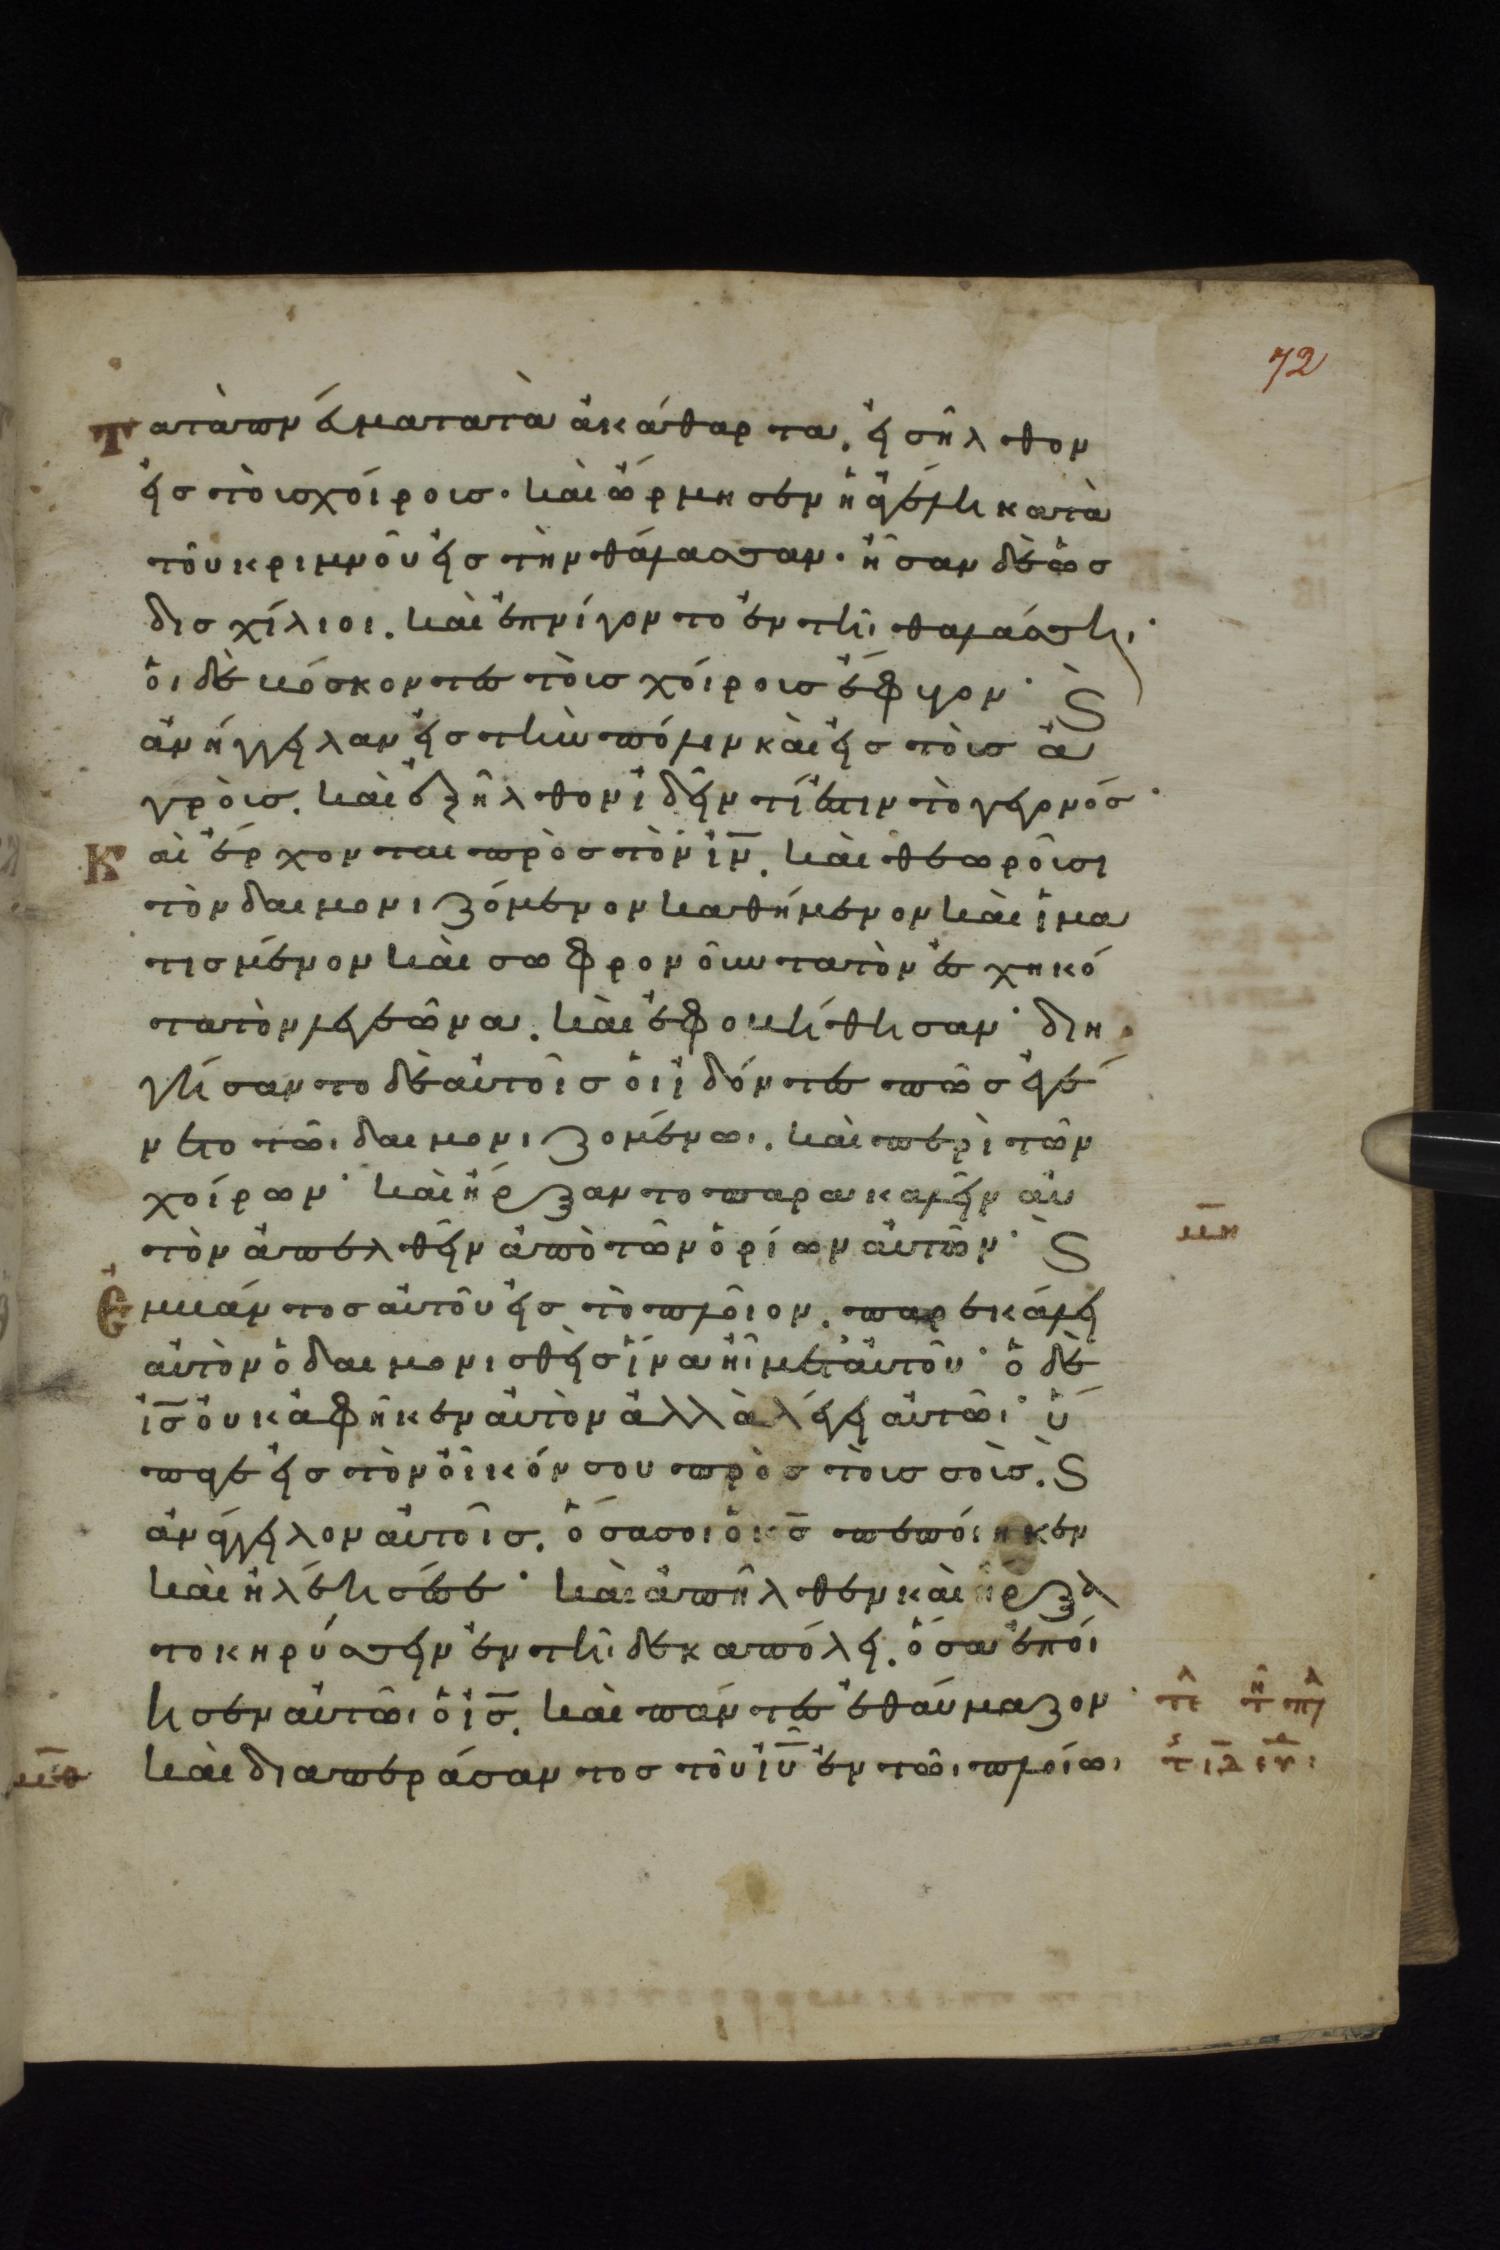 72
Τὰ τὰ πνέματα τὰ ἀκάθαρτα. εἰσῆλθον
εἰς τοὺς χοίρους· καὶ ὥρμησεν ἡ ἀγέλη κατὰ
τοῦ κριμνοῦ εἰς τὴν θάλασσαν· ἦσαν δὲ ὡς
δισχίλιοι. καὶ ἐπνίγοντο ἐν τῆι θαλάσσηι·
ὁι δὲ βόσκοντες τοὺς χοίρους ἔφυγον· Ϛ
ἀνήγγειλαν εἰς τὴν πόλιν καὶ εἰς τοὺς ἀ
γρούς. καὶ ἐξῆλθον ἰδεῖν τί ἐστιν τὸ γεγονός·
Καὶ ἔρχονται πρὸς τὸν ιν̅. καὶ θεωροῦσι
τὸν δαιμονιζόμενον καθήμενον καὶ ἱμα
τισμένον καὶ σωφρονοῦντα τὸν ἐσχηκό
τα τὸν λεγεῶνα. καὶ ἐφοβήθησαν· διη
γήσαντο δὲ αὐτοῖς ὁι ἰδόντες πῶς ἐγέ
νετο τῶι δαιμονιζομένωι. καὶ περὶ τῶν
χοίρων· καὶ ἤρξαντο παρακαλεῖν αὐ
τὸν ἀπελθεῖν ἀπὸ τῶν ὁρίων αὐτῶν· Ϛ
μη̅
Ἐμβάντος αὐτοῦ εἰς τὸ πλοῖον. παρεκάλει
αὐτὸν ὁ δαιμονισθεὶς ἵνα ἦι μετ' αὐτοῦ· ὁ δὲ
ις̅ οὐκ ἀφῆκεν αὐτὸν ἀλλὰ λέγει αὐτῶι· ὕ
παγε εἰς τὸν οἶκόν σου πρὸς τοὺς σούς. Ϛ
ἀνάγγειλον αὐτοῖς. ὅσα σοι ὁ κς̅ πεποίηκεν
καὶ ἠλέησέ σε· καὶ ἀπῆλθεν καὶ ἤρξα
το κηρύσσειν ἐν τῆι δεκαπόλει. ὅσα ἐποί
ησεν αὐτῶι ὁ ις̅. καὶ πάντες ἐθαύμαζον·
μθ̅ καὶ διαπεράσαντος τοῦ ιυ̅ ἐν τῶι πλοίωι